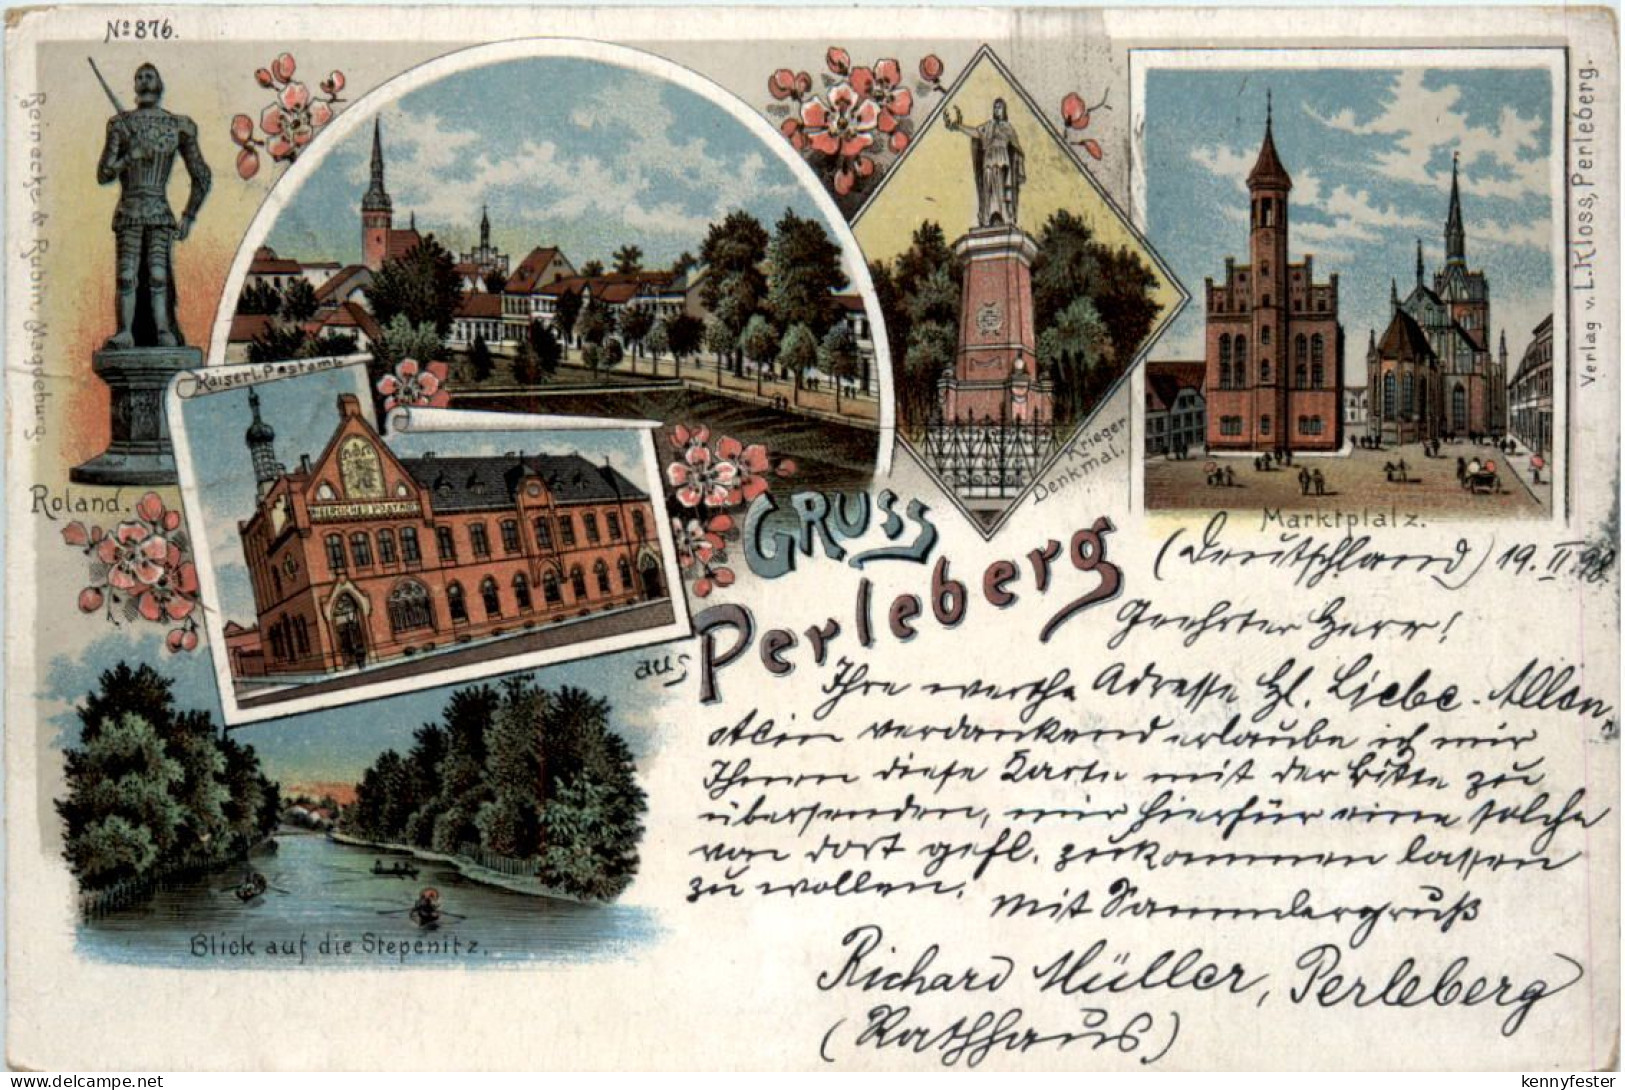 No 876.
Reinecke & Rubin, Magdeburg.
Roland.
Kaiserl. Postamt
KAISERLICHES POSTAMT
Krieger
Denkmal.
Marktplatz.
Verlag v. L. Kloss, Perleberg.
Blick auf die Stepenitz.
GRUSS
aus Perleberg
(Deutschland) 19. II. 98.
Geehrter Herr!
Ihre werthe Adresse Hl. Liebe-Allen-
stein verdankend erlaube ich mir
Ihnen diese Karte mit der Bitte zu
übersenden, mir hierfür eine solche
von dort gefl. zukommen lassen
zu wollen.
Mit Sammlergruß
Richard Müller, Perleberg
(Rathhaus.)
kennyfester